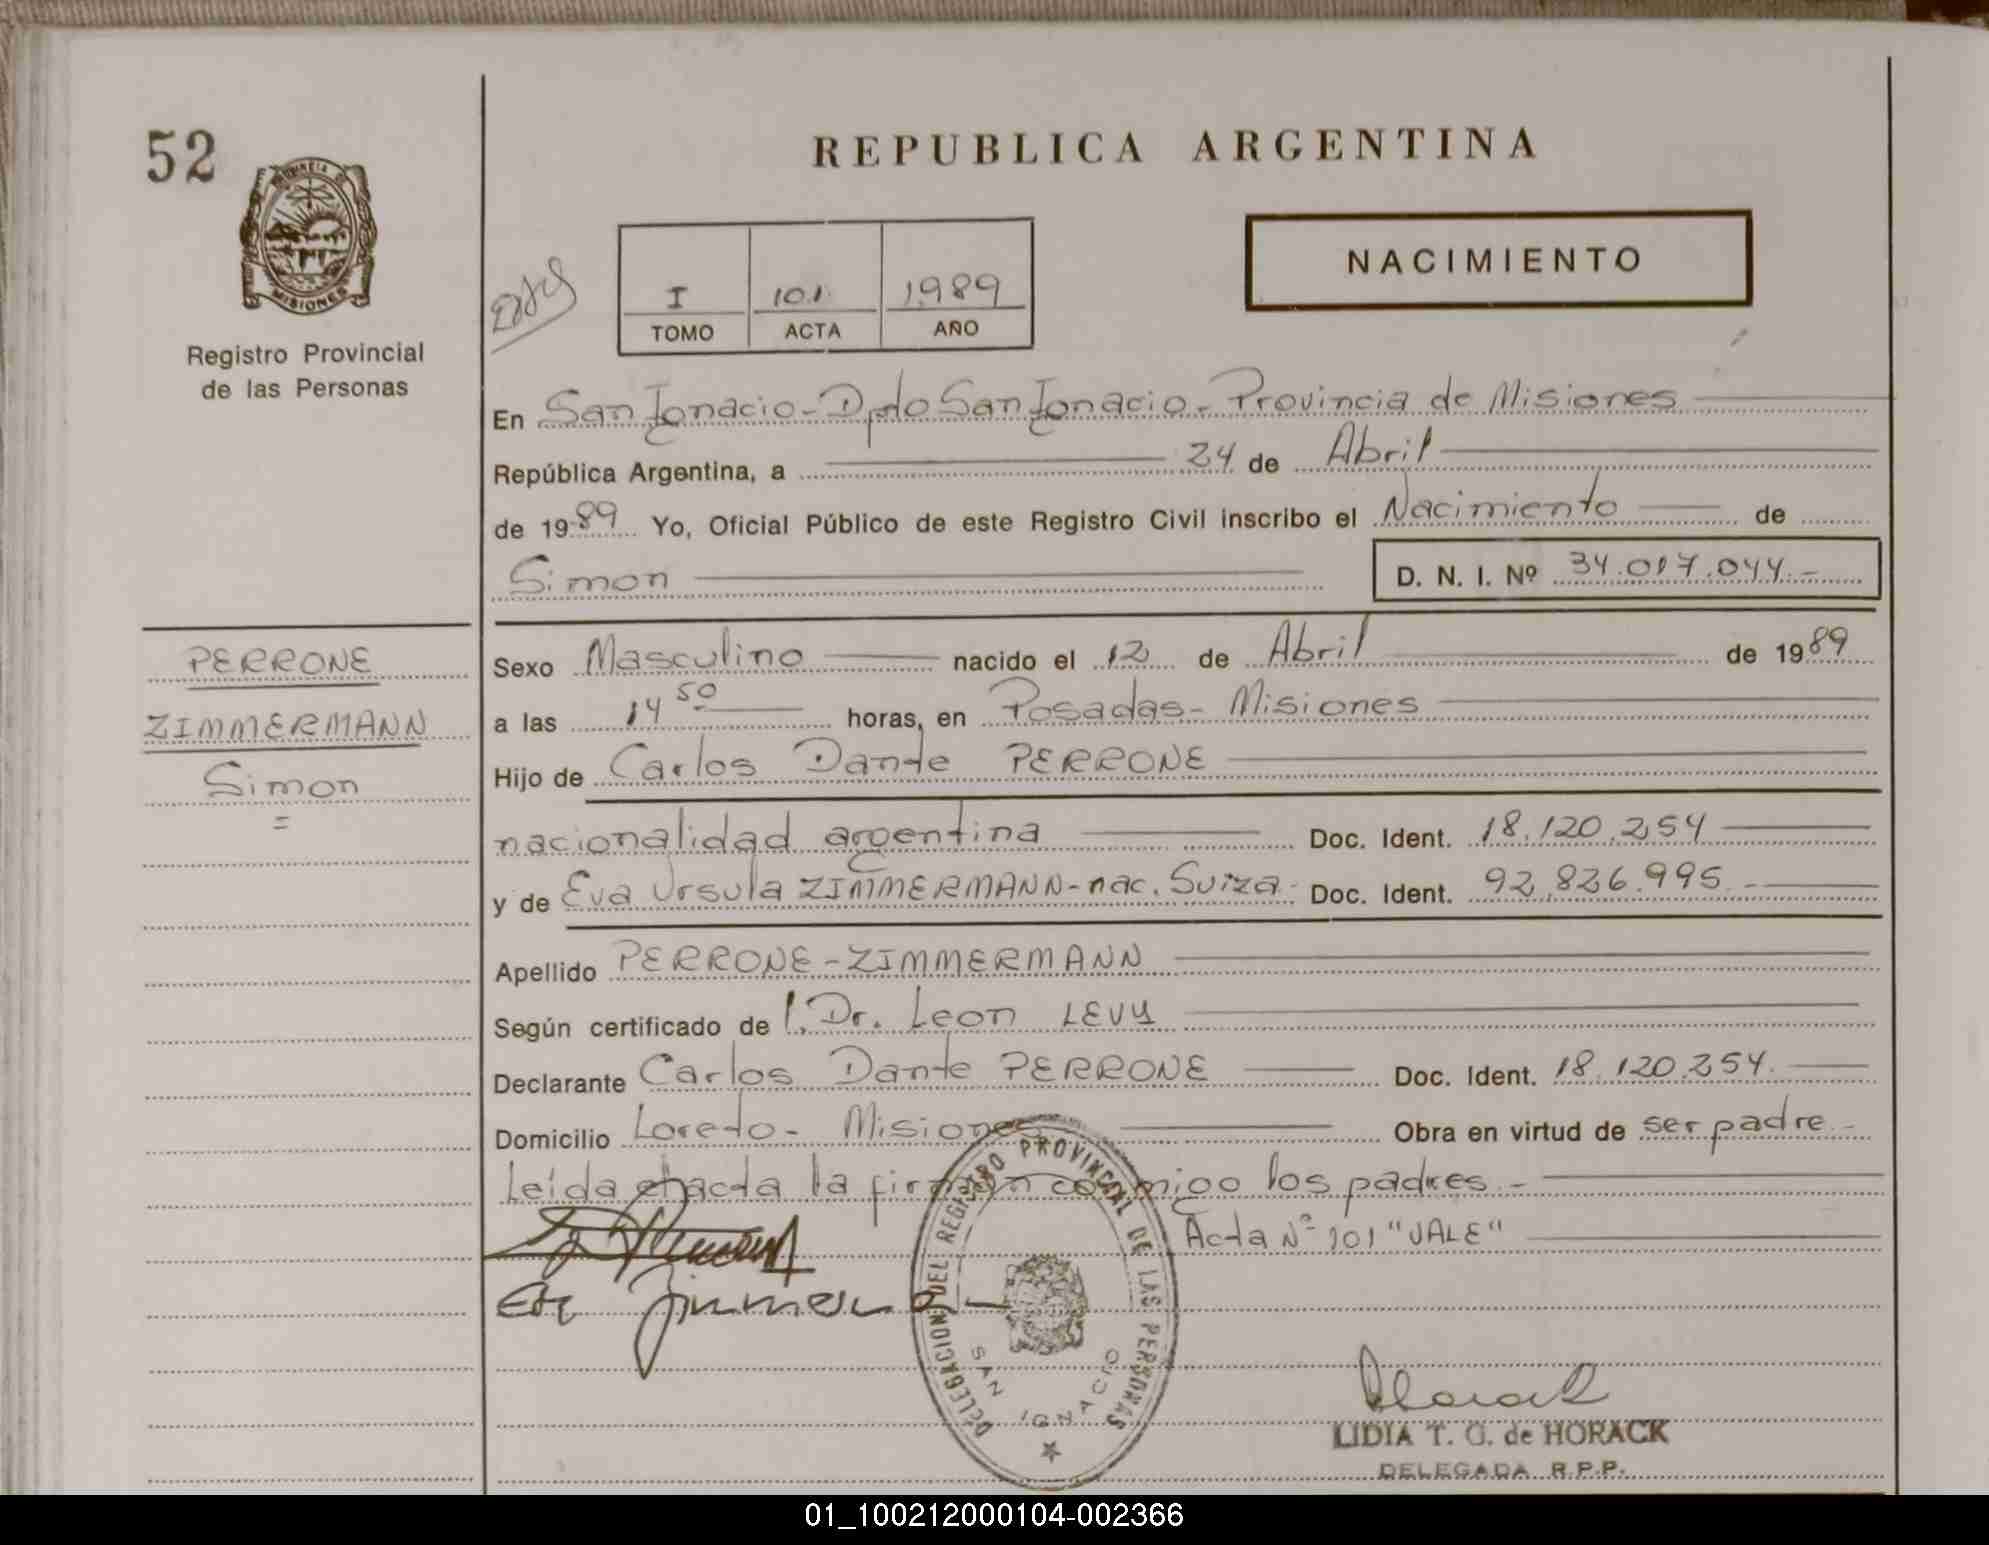 52
PROVINCIA DE
MISIONES
Registro Provincial
de las Personas
REPUBLICA ARGENTINA
NACIMIENTO
I 101. 1989
TOMO ACTA AÑO
En San Ignacio - Dpto San Ignacio - Provincia de Misiones
República Argentina, a 24 de Abril
de 1989 Yo, Oficial Público de este Registro Civil inscribo el Nacimiento de
Simon D. N. I. Nº 34.017.044.-
PERRONE
ZIMMERMANN
Simon
=
Sexo Masculino nacido el 12 de Abril de 1989
a las 14 50 horas, en Posadas - Misiones
Hijo de Carlos Dante PERRONE
nacionalidad argentina Doc. Ident. 18.120.254
y de Eva Ursula ZIMMERMANN - nac. Suiza - Doc. Ident. 92.826.995.-
Apellido PERRONE - ZIMMERMANN
Según certificado de l. Dr. Leon LEVY
Declarante Carlos Dante PERRONE Doc. Ident. 18.120.254.
Domicilio Loreto - Misiones Obra en virtud de ser padre -
Leída el acta la firman conmigo los padres. -
Acta Nº 101 "VALE"
DELEGACION DEL REGISTRO PROVINCIAL DE LAS PERSONAS
SAN IGNACIO
LIDIA T. G. de HORACK
DELEGADA R.P.P.
01_100212000104-002366